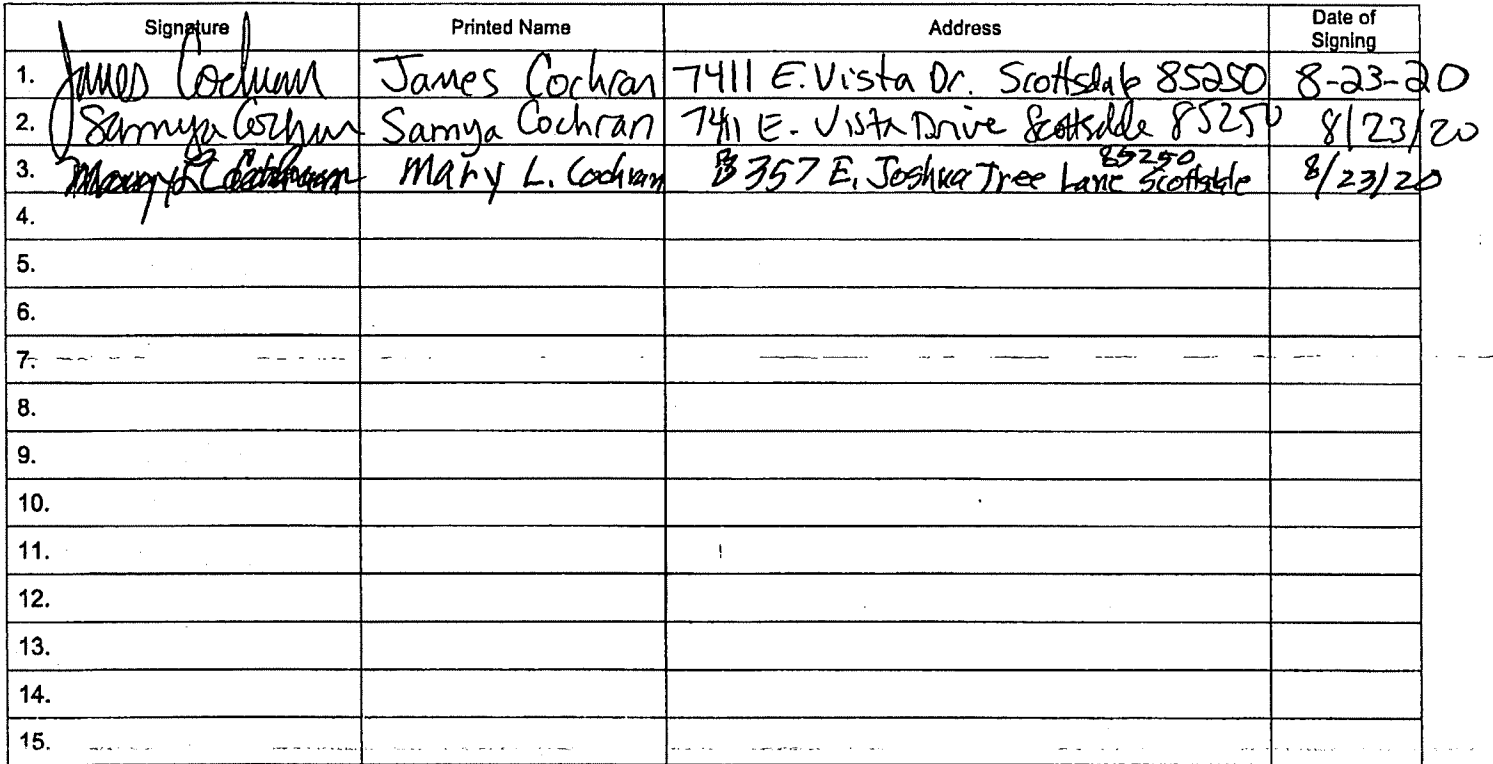 Signature Printed Name Address Date of Signing
1. James Cochran James Cochran 7411 E. Vista Dr. Scottsdale 85250 8-23-20
2. Samya Cochran Samya Cochran 7411 E. Vista Drive Scottsdale 85250 8/23/20
3. Mary L Cochran Mary L. Cochran 8357 E. Joshua Tree Lane Scottsdale 85250 8/23/20
4.
5.
6.
7.
8.
9.
10.
11.
12.
13.
14.
15.